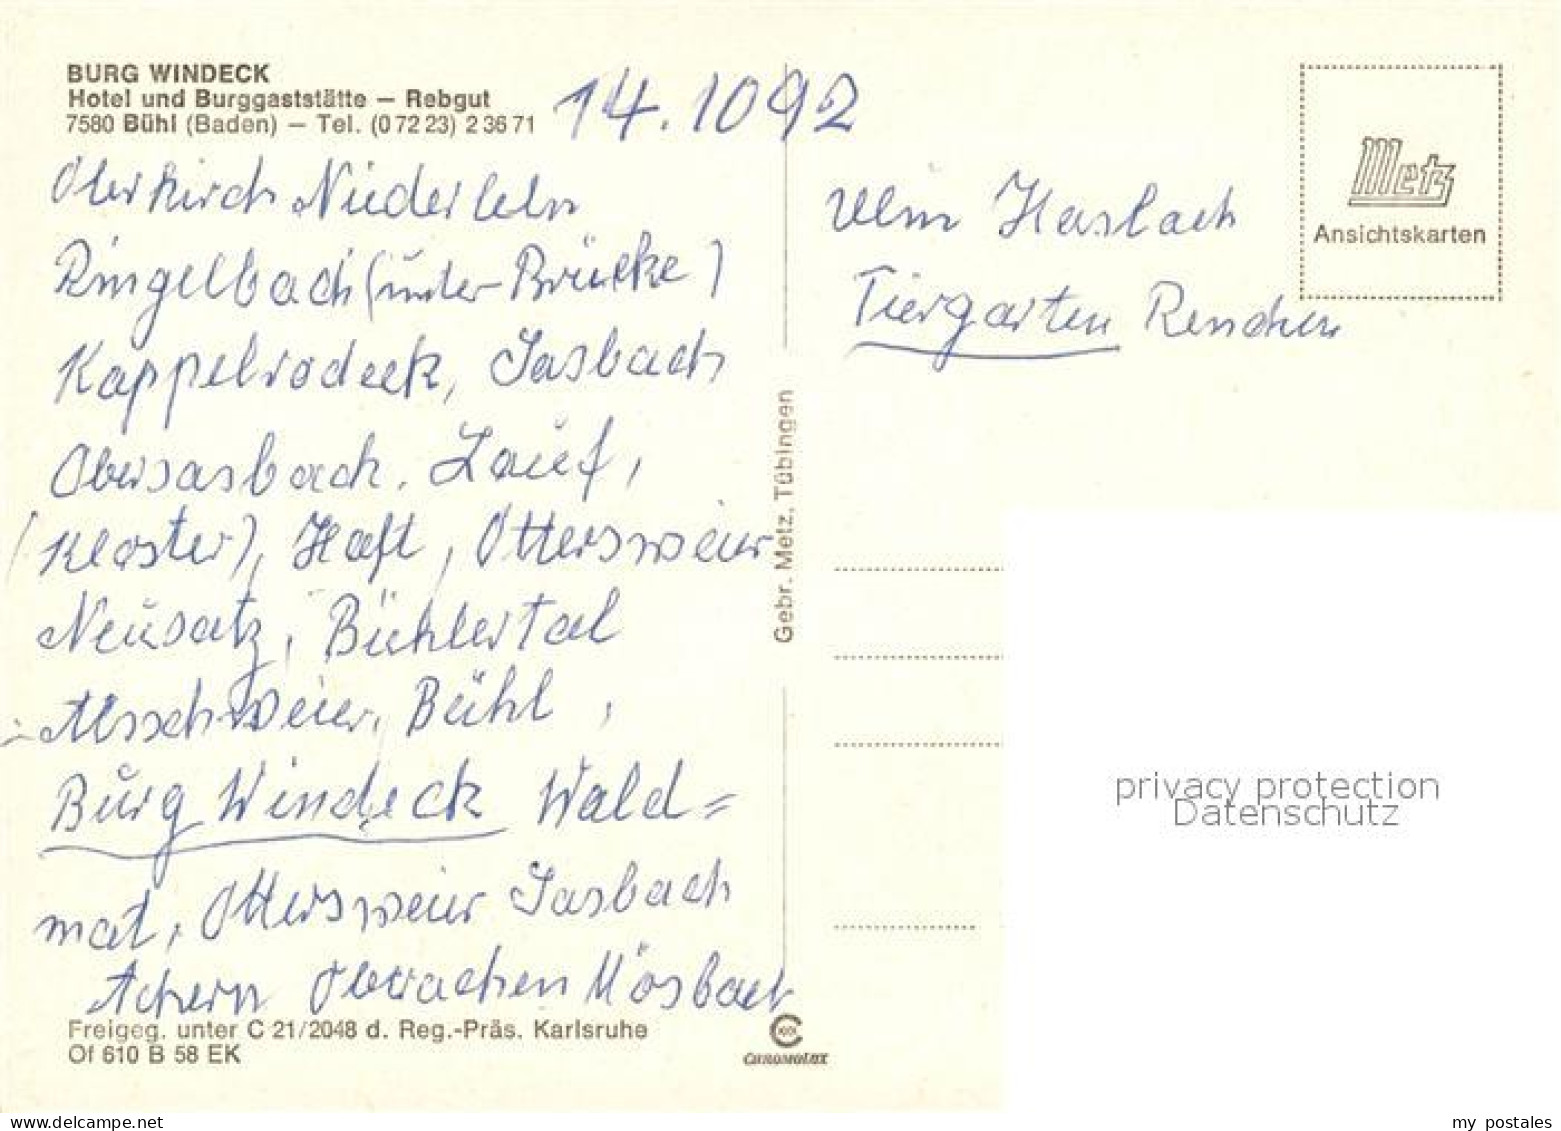 BURG WINDECK
Hotel und Burggaststätte — Rebgut
7580 Bühl (Baden) — Tel. (0 72 23) 2 36 71
14.1092
Oberkirch Niederlehn
Ringelbach (unter Brücke)
Kappelrodeck, Sasbach
Obersasbach. Lauf,
(Kloster), Haft, Ottersweier
Neusatz, Bühlertal
Altschweier, Bühl,
Burg Windeck Wald=
mat, Ottersweier Sasbach
Achern Oberachern Mösbach
Freigeg. unter C 21/2048 d. Reg.-Präs. Karlsruhe
Of 610 B 58 EK
Gebr. Metz, Tübingen
CHROMOLUX
Ulm Haslach
Tiergarten Renchen
Metz
Ansichtskarten
privacy protection
Datenschutz
my postales